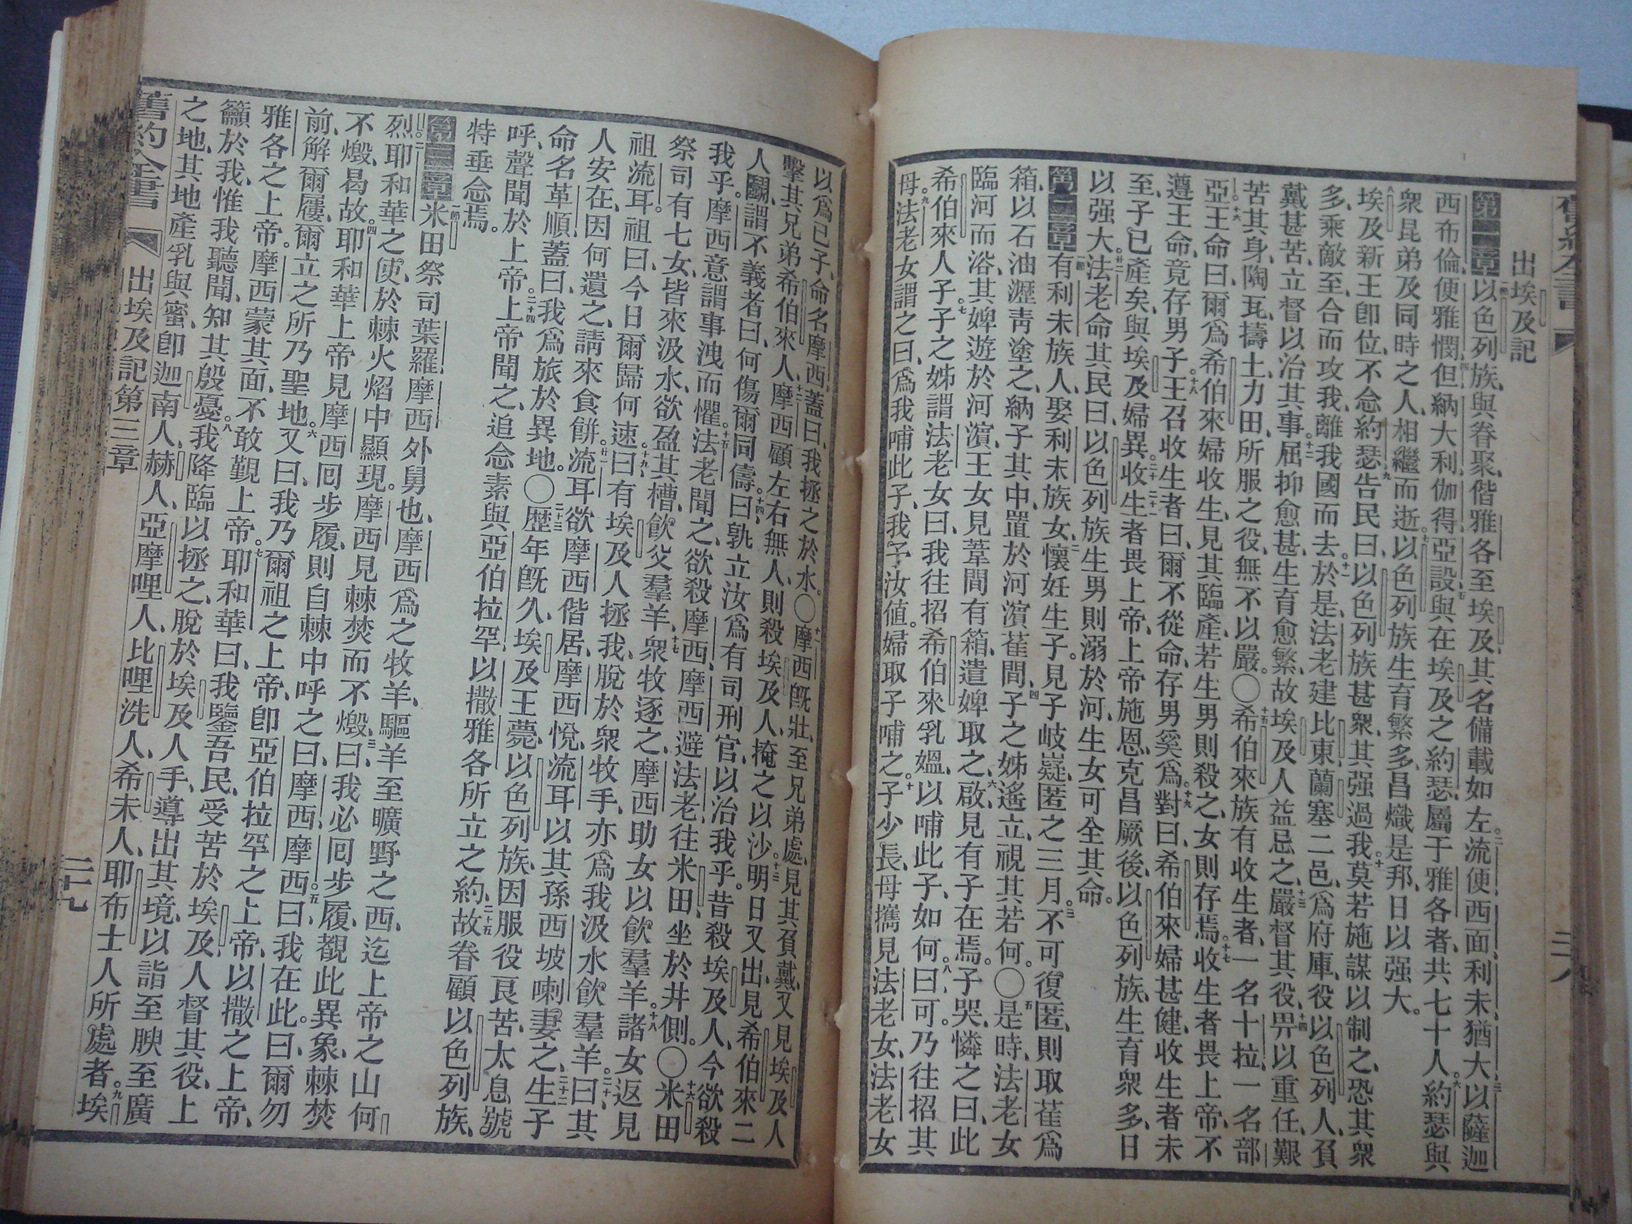 出埃及記
第一章以色列族與眷聚偕雅各至埃及其名備載如左二流便西面利未猶大三以薩迦
西布倫便雅憫但納大利伽得亞設與在埃及之約瑟屬于雅各者共七十人六約瑟與
衆昆弟及同時之人相繼而逝七以色列族生育繁多昌熾是邦日以强大
八埃及新王卽位不念約瑟九告民曰以色列族甚衆其强過我十莫若施謀以制之恐其衆
多乘敵至合而攻我離我國而去十一於是法老建比東蘭塞二邑爲府庫役以色列人負
戴甚苦立督以治其事十二屈抑愈甚生育愈繁故埃及人益忌之十三嚴督其役十四畀以重任艱
苦其身陶瓦擣土力田所服之役無不以嚴〇十五希伯來族有收生者一名十拉一名部
亞十六王命曰爾爲希伯來婦收生見其臨產若生男則殺之女則存焉十七收生者畏上帝不
遵王命竟存男子十八王召收生者曰爾不從命存男奚爲十九對曰希伯來婦甚健收生者未
至子已產矣與埃及婦異二十二十一收生者畏上帝上帝施恩克昌厥後以色列族生育衆多日
以强大廿二法老命其民曰以色列族生男則溺於河生女可全其命
第二章有利未族人娶利未族女二懷妊生子見子岐嶷匿之三月三不可復匿則取萑爲
箱以石油瀝靑塗之納子其中置於河濱萑間四子之姊遙立視其若何〇五是時法老女
臨河而浴其婢遊於河濱王女見葦間有箱遣婢取之六啟見有子在焉子哭憐之曰此
希伯來人子七子之姊謂法老女曰我往招希伯來乳媼以哺此子如何八曰可乃往招其
母九法老女謂之曰爲我哺此子我予汝値婦取子哺之十子少長母攜見法老女法老女
以爲己子命名摩西蓋曰我拯之於水〇十一摩西旣壯至兄弟處見其負戴又見埃及人
擊其兄弟希伯來人十二摩西顧左右無人則殺埃及人掩之以沙十三明日又出見希伯來二
人鬬謂不義者曰何傷爾同儔十四曰孰立汝爲有司刑官以治我乎昔殺埃及人今欲殺
我乎摩西意謂事洩而懼十五法老聞之欲殺摩西摩西避法老往米田坐於井側〇十六米田
祭司有七女皆來汲水欲盈其槽飮父羣羊十七衆牧逐之摩西助女以飮羣羊十八諸女返見
祖流耳祖曰今日爾歸何速十九曰有埃及人拯我脫於衆牧手亦爲我汲水飮羣羊二十曰其
人安在因何遺之請來食餅廿一流耳欲摩西偕居摩西悅流耳以其孫西坡喇妻之二十二生子
命名革順蓋曰我爲旅於異地〇二十三歷年旣久埃及王薨以色列族因服役艮苦太息號
呼聲聞於上帝二十四上帝聞之追念素與亞伯拉罕以撒雅各所立之約二十五故眷顧以色列族
特垂念焉
第三章米田祭司葉羅摩西外舅也摩西爲之牧羊驅羊至曠野之西迄上帝之山何
烈二耶和華之使於棘火焰中顯現摩西見棘焚而不燬三曰我必回步履觀此異象棘焚
不燬曷故四耶和華上帝見摩西回步履則自棘中呼之曰摩西摩西曰我在此五曰爾勿
前解爾屨爾立之所乃聖地六又曰我乃爾祖之上帝卽亞伯拉罕之上帝以撒之上帝
雅各之上帝摩西蒙其面不敢觀上帝七耶和華曰我鑒吾民受苦於埃及人督其役上
籲於我惟我聽聞知其殷憂八我降臨以拯之脫於埃及人手導出其境以詣至腴至廣
之地其地產乳與蜜卽迦南人赫人亞摩哩人比哩洗人希未人耶布士人所處者九埃
舊約全書 出埃及記第三章 二十九